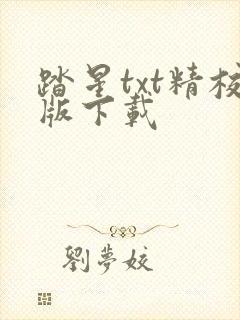 踏星txt精校
版下载
劉夢姣